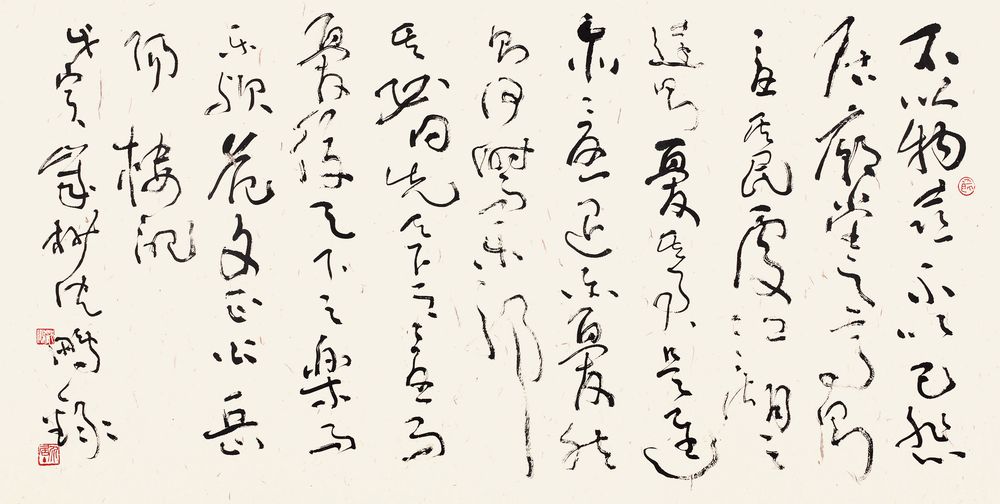 不以物喜不以己悲
居廟堂之高則
憂其民處江湖之
遠則憂其君是進
亦憂退亦憂然
則何時而樂耶
其必曰先天下之憂而
憂後天下之樂而
樂歟范文正公岳
陽樓記
戊寅沈鵬錄